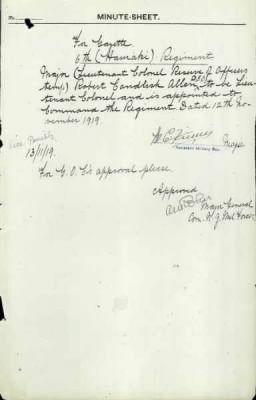 MINUTE-SHEET.
For Gazette
6th (Hauraki) Regiment
Major (Lieutenant Colonel Reserve of Officers
temp) Robert Candlish Allen DSO to be Lieu-
tenant Colonel and is appointed to
Command the Regiment. Dated 12th No-
vember 1919
Major
13/11/19.
For G.O.C's approval please
Approved
Major General
Com. N Z Mil Forces